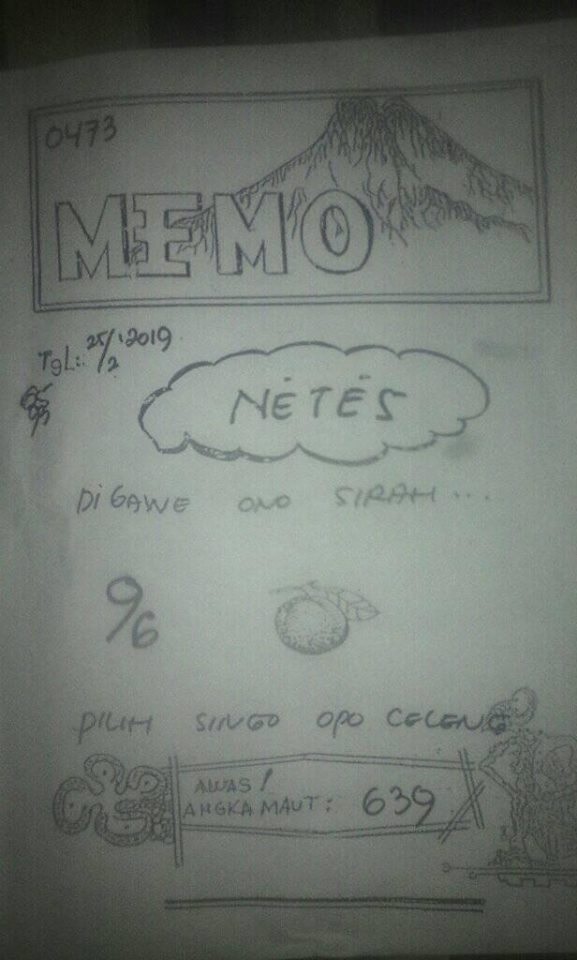 0473
MEMO
TgL: 25/2 2019
NĖTĖS
DiGAWE ONO SIRAH...
9/6
PILIH SINGO OPO CELENG
AWAS!
ANGKA MAUT: 639